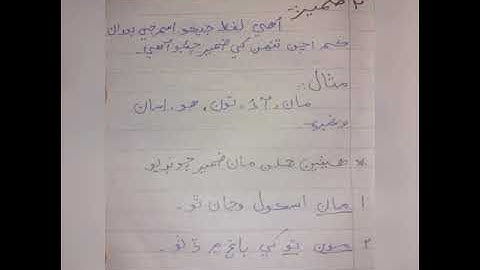 ۲ ضمير:-
اهي لفظ جيڪو اسم جي بدران
ڪم اچن تنهن کي ضمير چئبو آهي.
مثال:-
مان، آءٌ، تون، هو، اسان
وغيره
* هيٺين جملن مان ضمير چونڊيو
۱ مان اسڪول وڃان ٿو۔
۲ مون تو کي باغ ۾ ڏٺو۔